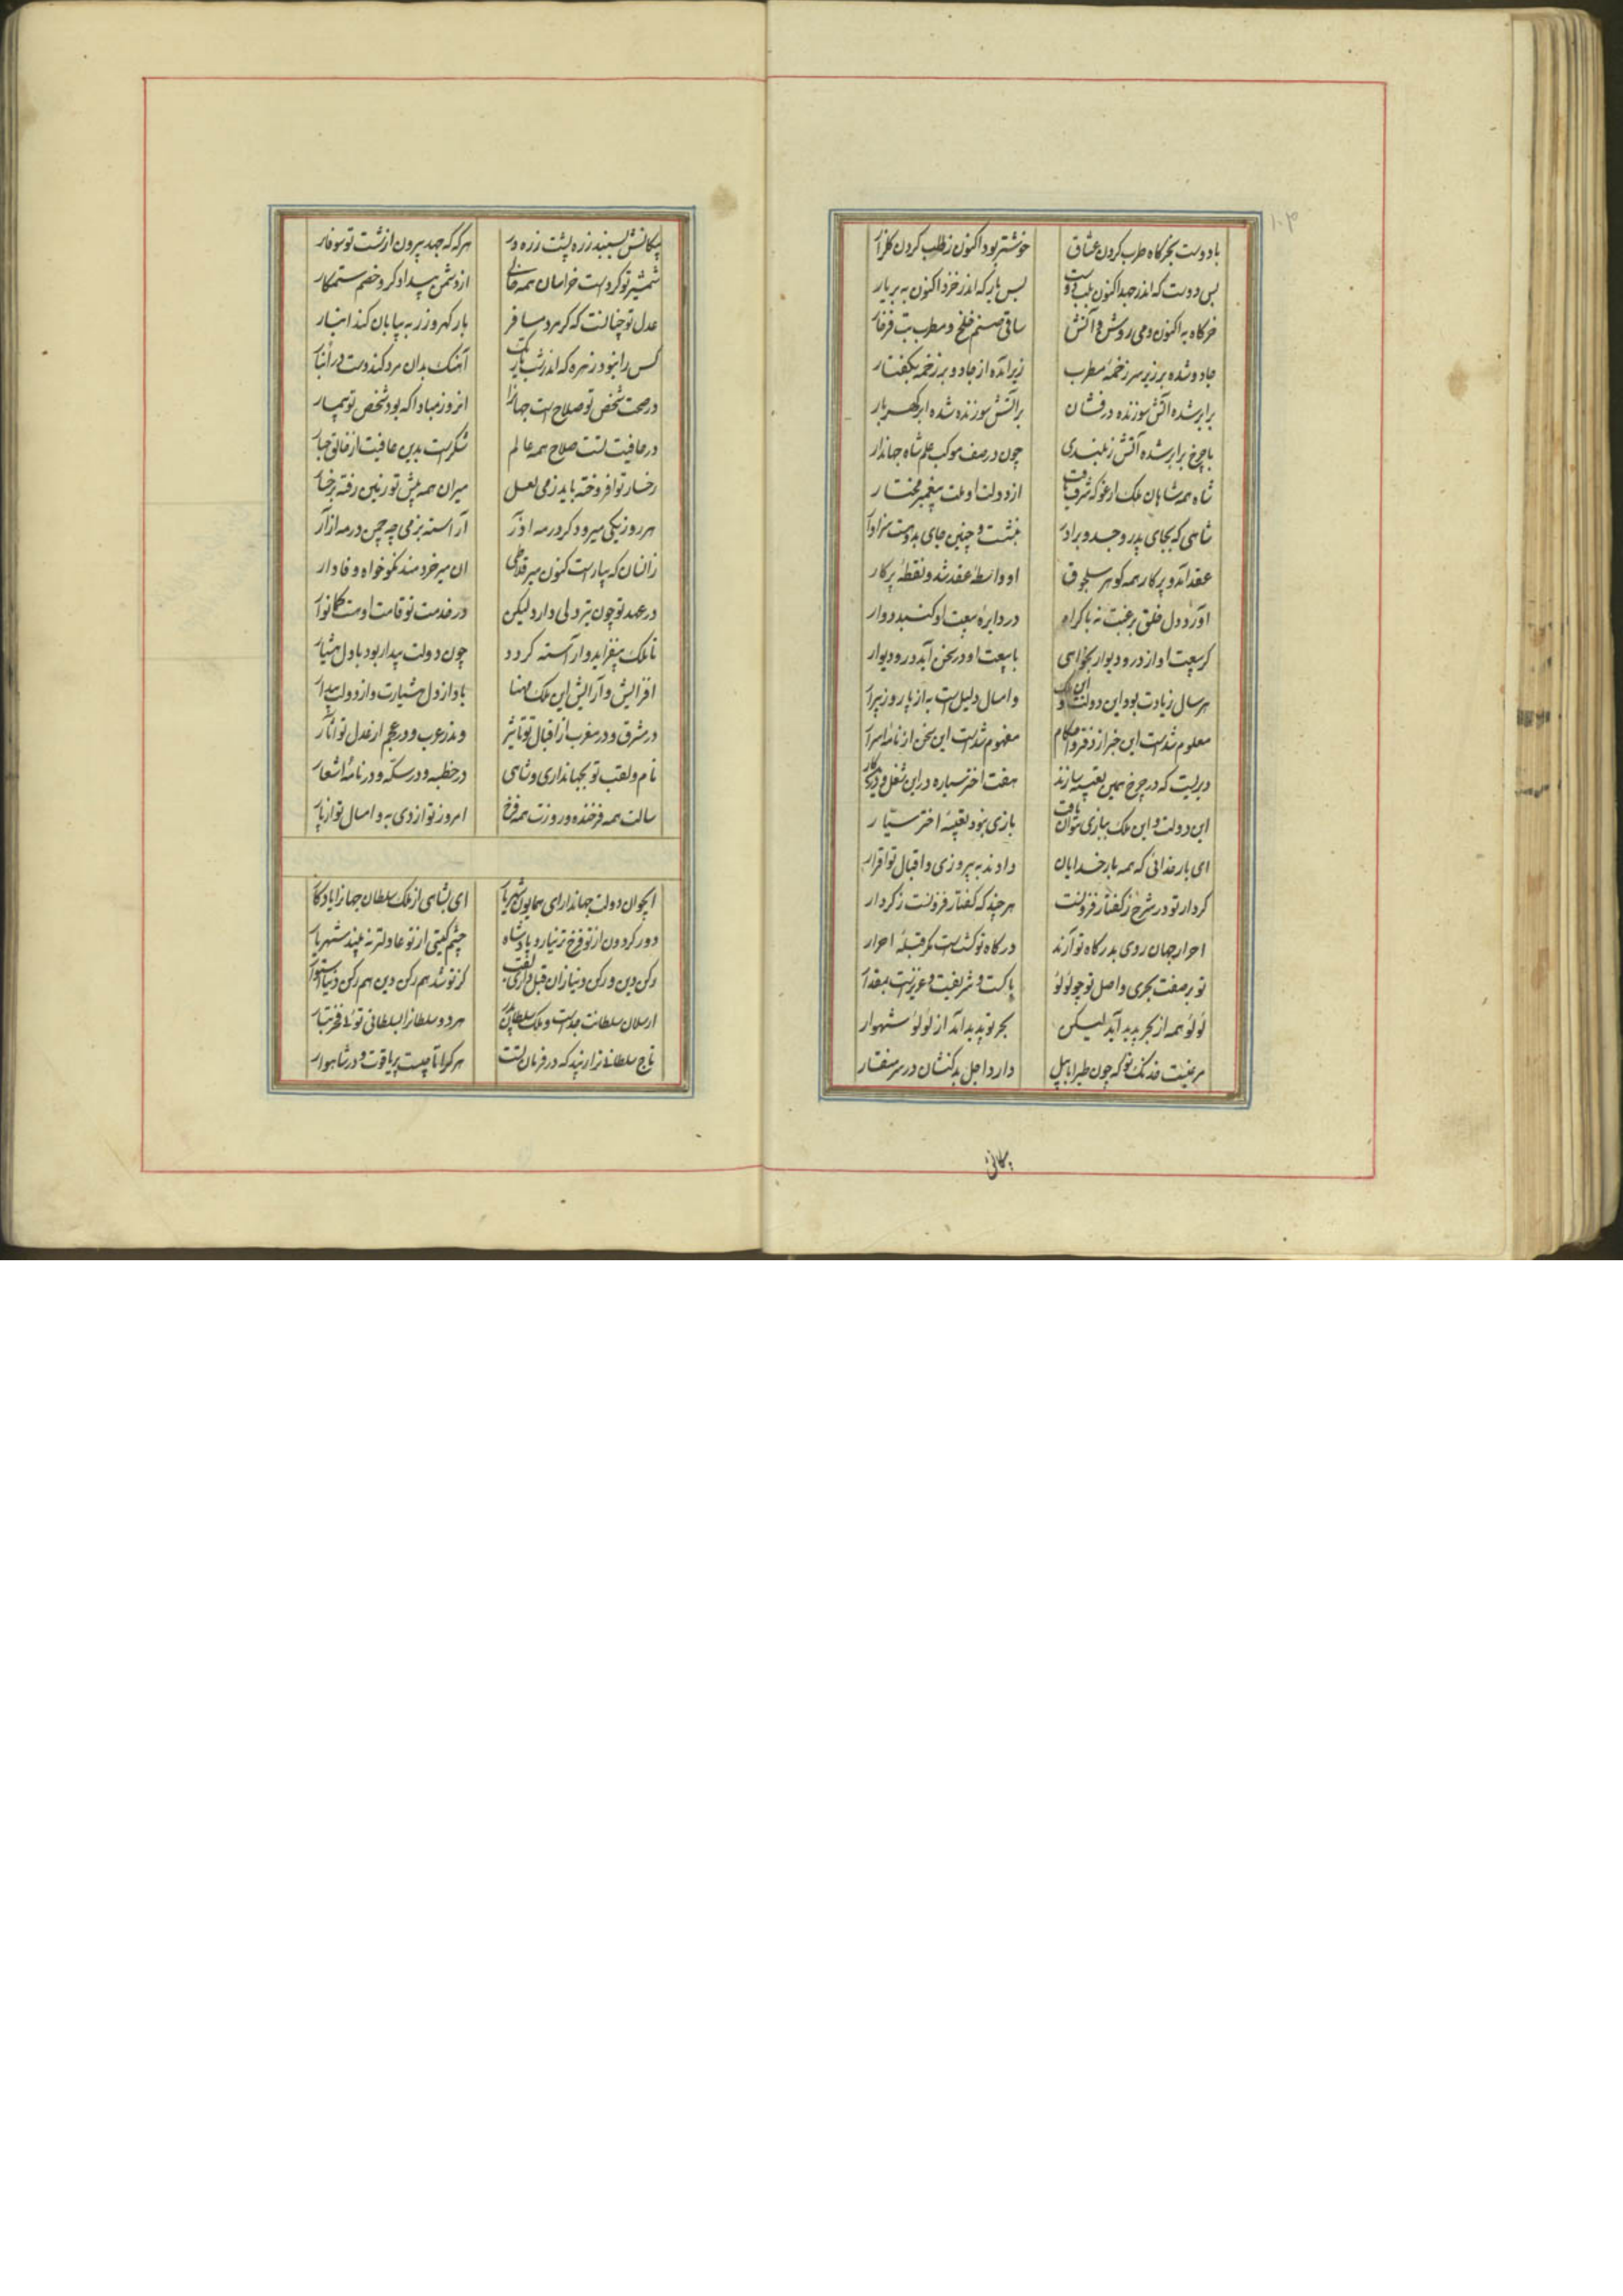 با دوست بخرگاه طرب کردن عشاق خوشتر بود اکنون ز طلب کردن گلزار
بس دوست که اندر جهد اکنون بلب دوست بس یار که اندر خزد اکنون ببر یار
خرگاه به اکنون و می روشن و آتش ساقی صنم خلخ و مطرب بت فرخار
جادو شده بر زیر سر زخمه مطرب زیر آمده از جادو بر زخمه بگفتار
برابر شده آتش سوزنده درفشان بر آتش سوزنده شده ابر گهربار
با چرخ برابر شده آتش ز بلندی چون در صف موکب علم شاه جهاندار
شاه همه شاهان ملک ارغو که شرف یافت از دولت او ملت پیغمبر مختار
شاهی که بجای پدر و جد و برادر بنشست و چنین جای بدوست سزاوار
عقد آمد و پرکار همه گوهر سلجوق او واسطه عقد شد و نقطه پرکار
آورد دل خلق برغبت نه باکراه در دایره بیعت او گنبد دوار
گر بیعت او از در و دیوار بخواهی با بیعت او در سخن آید در و دیوار
هر سال زیادت بود این دولت و این ملک و امسال دلیل است به از پار و ز پیرار
معلوم شدست این خبر از دفتر احکام مفهوم شدست این سخن از نامه اسرار
دیریست که در چرخ همین تعبیه سازند هفت اختر سیاره درین شغل و درین کار
این دولت و این ملک ببازی نتوان یافت بازی نبود تعبیه اختر سیار
ای بار خدائی که همه بار خدایان دادند به پیروزی و اقبال تو اقرار
کردار تو در شرح ز گفتار فزونست هر چند که گفتار فزونست ز کردار
احرار جهان روی بدرگاه تو آرند درگاه تو گشتست مگر قبله احرار
تو بر صفت بحری و اصل تو چو لؤلؤ پاکست و شریفست و عزیزست بمقدار
لؤلؤ همه از بحر پدید آید لیکن بحر تو پدید آمد از لؤلؤ شهوار
مرغیست خدنگ تو که چون طیر ابابیل دارد اجل بدکنشان در سر منقار
پیکانش
پیکانش ببیند زره پشت زره ور هر گه که جهد بیرون از شست تو سوفار
شمشیر تو کردست خراسان همه خالی از دشمن بیدادگر و خصم ستمکار
عدل تو چنانست که گر مرد مسافر بار گهر و زر به بیابان کند انبار
کس را نبود زهره که اندر شب تاریک آهنگ بدان مرد کند دست در انبار
در صحت شخص تو صلاح است جهانرا آنروز مبادا که بود شخص تو بیمار
در عافیت تست صلاح همه عالم شکرست بدین عافیت از خالق جبار
رخسار تو افروخته باید ز می لعل میران همه پیش تو زمین رفته برخسار
هر روز یکی میر و دگر در مه آذر آراسته بزمی چه چمن در مه آزار
زانسان که بیارست کنون میر قلاطی آن میر خردمند نکوخواه وفادار
در عهد تو چون تیر دلی دارد لیکن در خدمت تو قامت اوست کمانوار
تا ملک بیفزاید و آراسته گردد چون دولت بیدار بود با دل هشیار
افزایش و آرایش این ملک مهنا بادا ز دل هشیارت و از دولت بیدار
در مشرق و در مغرب از اقبال تو تاثیر و ندر عرب و در عجم از عدل تو آثار
نام و لقب تو بجهانداری و شاهی در خطبه و در سکه و در نامه اشعار
سالت همه فرخنده و روزت همه فرخ امروز تو از دی به و امسال تو از پار
ای جوان دولت جهاندار ای همایون شهریار ای بشاهی از ملک سلطان جهانرا یادگار
دور گردون از تو فرخ تر نیارد پادشاه چشم گیتی از تو عادلتر نه بیند شهریار
رکن دین و رکن دنیا زان قبل داری لقب کز تو شد هم رکن دین هم رکن دنیا استوار
ارسلان سلطانت جدست و ملک سلطان پدر هر دو سلطانرا بسلطانی توئی فخر تبار
تاج سلطانی ترا زیبد که در فرمان تست هر کرا تاجیست پر یاقوت و در شاهوار